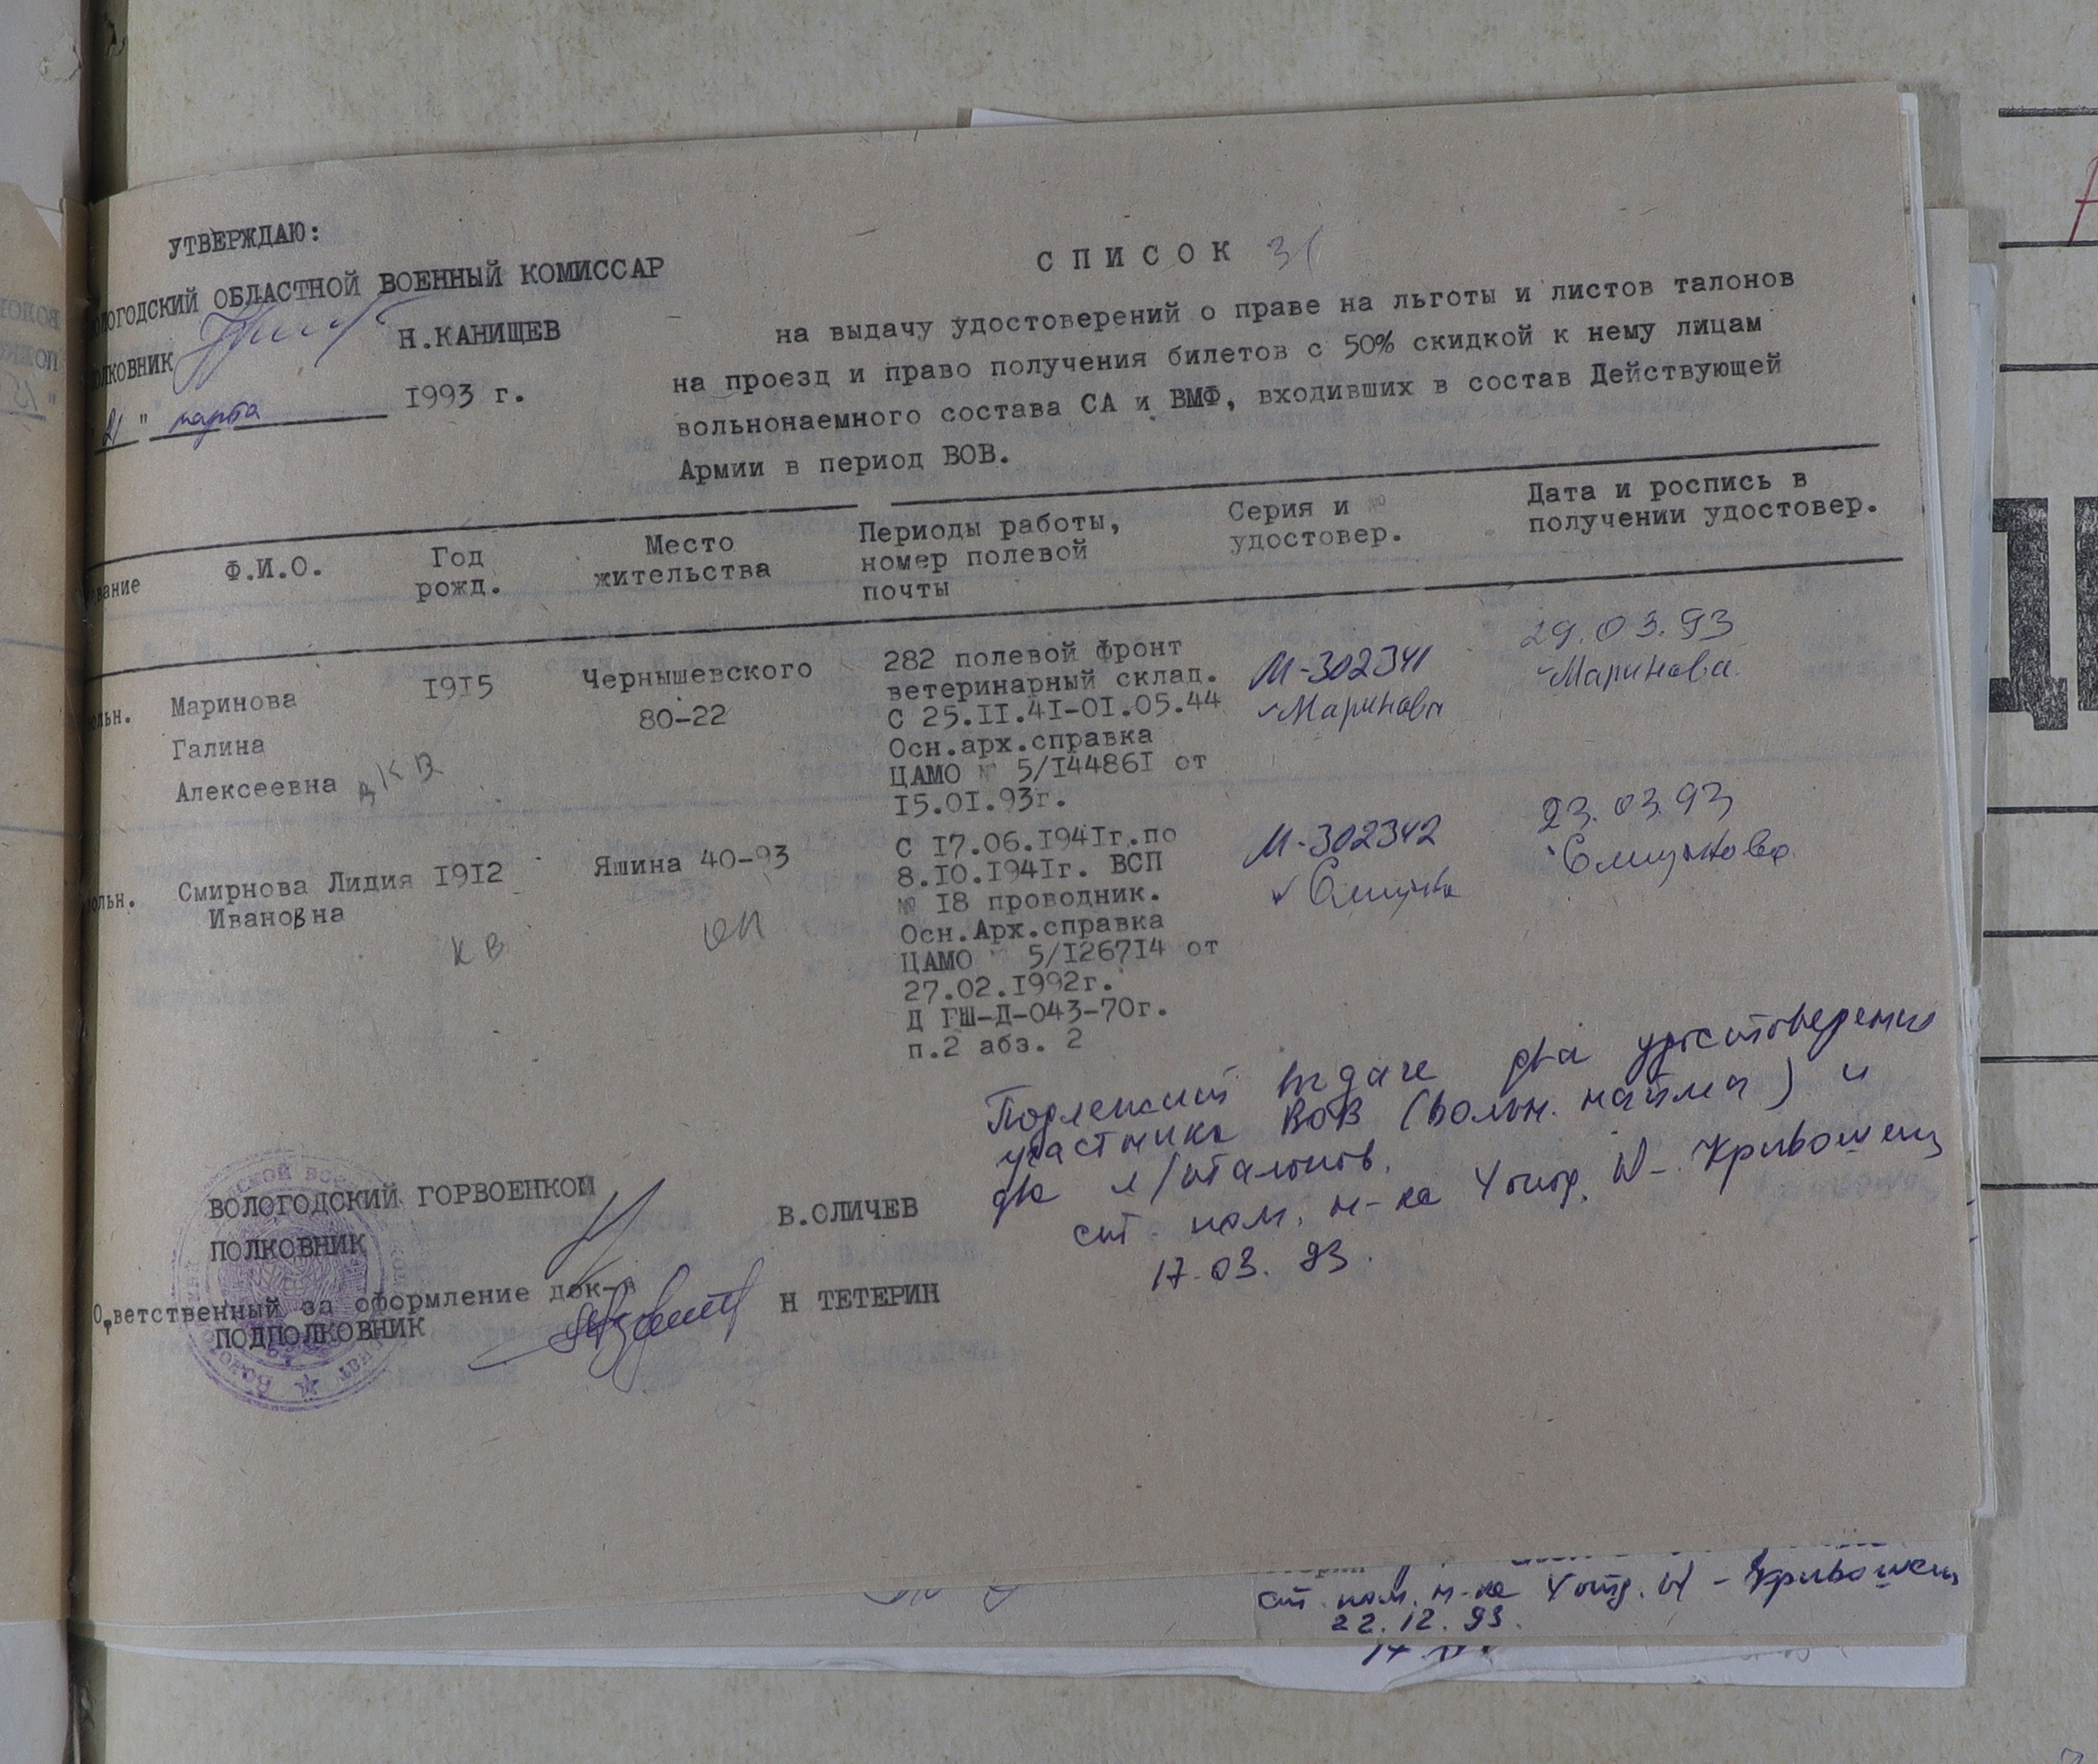 УТВЕРЖДАЮ:
ВОЛОГОДСКИЙ ОБЛАСТНОЙ ВОЕННЫЙ КОМИССАР
ПОЛКОВНИК Н.КАНИЩЕВ
"21" марта 1993 г.
СПИСОК 31
на выдачу удостоверений о праве на льготы и листов талонов
на проезд и право получения билетов с 50% скидкой к нему лицам
вольнонаемного состава СА и ВМФ, входивших в состав Действующей
Армии в период ВОВ.
звание
Ф.И.О.
Год
рожд.
Место
жительства
Периоды работы,
номер полевой
почты
Серия и №
удостовер.
Дата и роспись в
получении удостовер.
вольн.
Маринова
Галина
Алексеевна
1915
Чернышевского
80-22
282 полевой фронт
ветеринарный склад.
С 25.II.4I-0I.05.44
Осн.арх.справка
ЦАМО № 5/I4486I от
I5.0I.93г.
М-302341
Маринова
29.03.93
Маринова
вольн.
Смирнова Лидия
Ивановна
КВ
I9I2
Яшина 40-93
ОП
С I7.06.I94Iг.по
8.I0.I94Iг. ВСП
№ I8 проводник.
Осн.Арх.справка
ЦАМО № 5/I267I4 от
27.02.I992г.
Д ГШ-Д-043-70г.
п.2 абз. 2
М-302342
23.03.93
Подлежит выдаче два удостоверения
участника ВОВ (вольн. найма) и
два л/талонов.
ст. пом. н-ка 4 отд. Кривошеин
17.03.93.
ВОЛОГОДСКИЙ ГОРВОЕНКОМ
ПОЛКОВНИК В.ОЛИЧЕВ
Ответственный за оформление док-в
ПОДПОЛКОВНИК Н ТЕТЕРИН
ст. пом. н-ка 4 отд. Кривошеин
22.12.93.